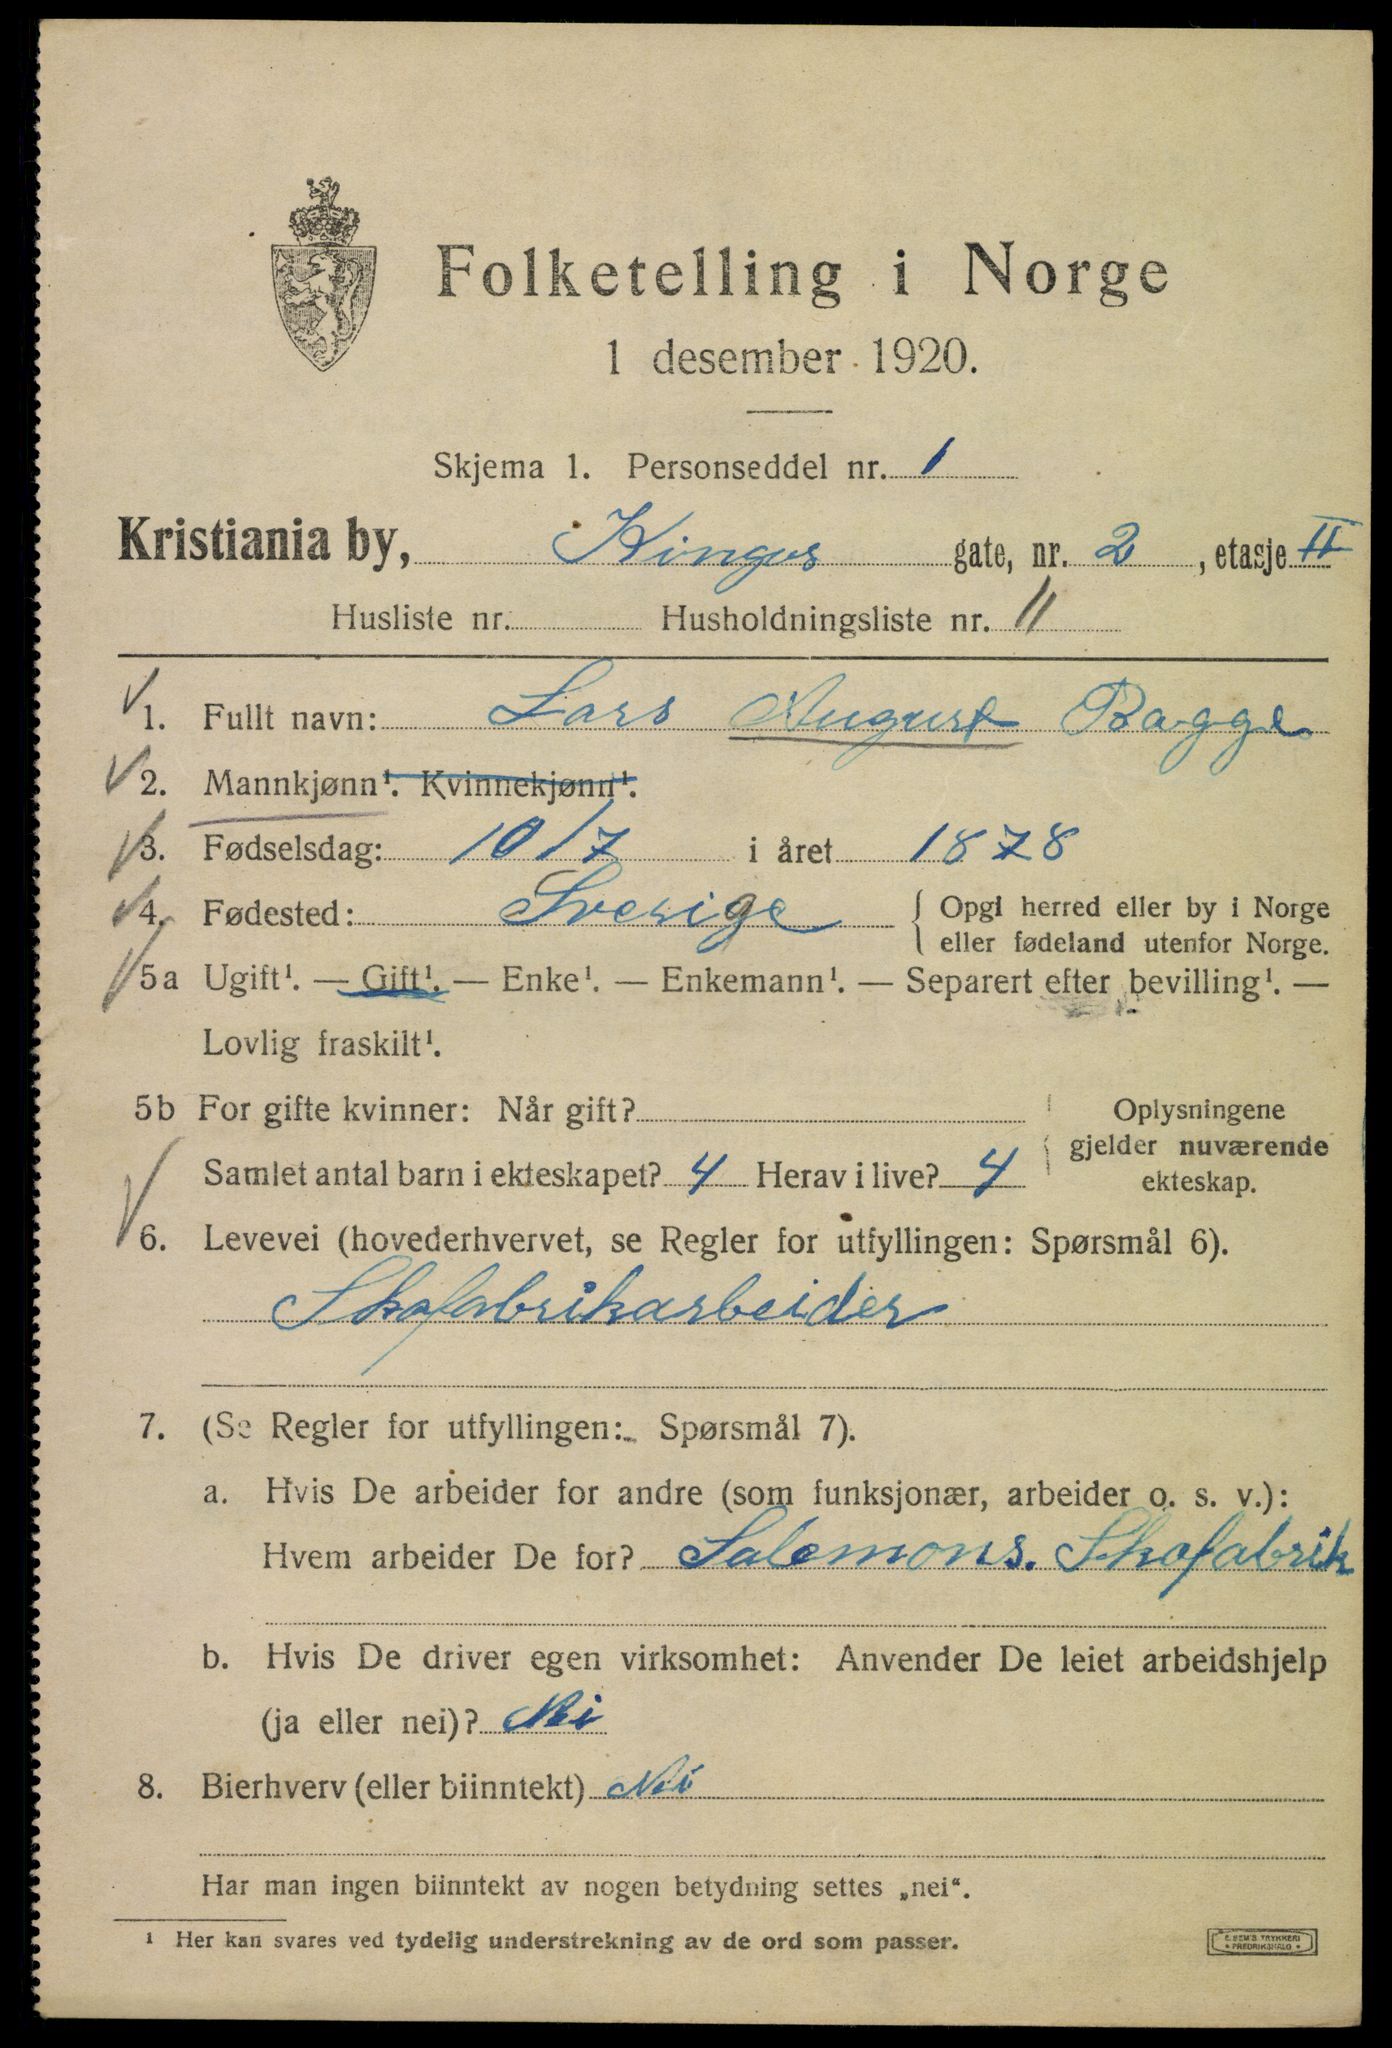 Folketelling i Norge
1 desember 1920.
Skjema 1. Personseddel nr. 1
Kristiania by, Kingos gate, nr. 2, etasje II
Husliste nr. Husholdningsliste nr. 11
1. Fullt navn: Lars August Bagge
2. Mannkjønn¹. Kvinnekjønn¹.
3. Fødselsdag: 10/7 i året 1878
4. Fødested: Sverige { Opgi herred eller by i Norge
eller fødeland utenfor Norge.
5a Ugift¹. — Gift¹. — Enke¹. — Enkemann¹. — Separert efter bevilling¹. —
Lovlig fraskilt¹.
5b For gifte kvinner: Når gift? Oplysningene
gjelder nuværende
Samlet antal barn i ekteskapet? 4 Herav i live? 4 ekteskap.
6. Levevei (hovederhvervet, se Regler for utfyllingen: Spørsmål 6).
Skofabrikarbeider
7. (Se Regler for utfyllingen: Spørsmål 7).
a. Hvis De arbeider for andre (som funksjonær, arbeider o. s. v.):
Hvem arbeider De for? Salemons. Skofabrik
b. Hvis De driver egen virksomhet: Anvender De leiet arbeidshjelp
(ja eller nei)? Nei
8. Bierhverv (eller biinntekt) Nei
Har man ingen biinntekt av nogen betydning settes „nei“.
¹ Her kan svares ved tydelig understrekning av de ord som passer.
E. SEM'S TRYKKERI
• FREDRIKSHALD •